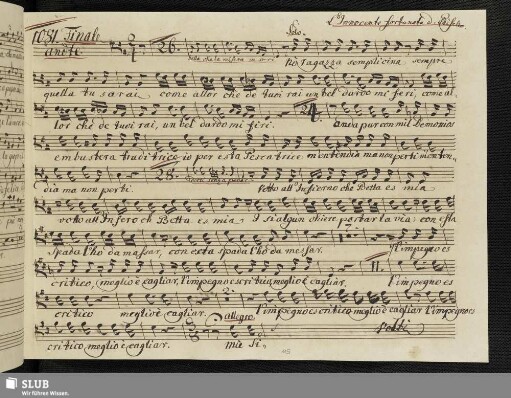 L'Innocente fortunata di Paisiello
1031. Finale
Solo.
anete 26. Ria ragazza semplicina sempre
quella tu sarai come allor che de tuoi rai un bel dardo mi feri, come al
lor che de tuoi rai, un bel dardo mi feri. 24. anda pur con mil Demonios
embustera traditrice io por esta Pescatrice m'entendia ma non per ti m'enten-
dia ma non per ti. 28. votto all'Infierno che Betta es mia
votto all'Infero ch Betta es mia I si algun obiere perbar la via: con esta
Spada l'hò da massar, con esta Spada l'hò da messar. 7. l'impegno es
critico, meglio è cagliar, l'impegno es critico, meglio è cagliar, 11. l'impegno es
critico meglio è cagliar. l'impegno es critico meglio è cagliar l'impegno es
critico, meglio è cagliar. allegro. mie Si.
115
SLUB
Wir führen Wissen.